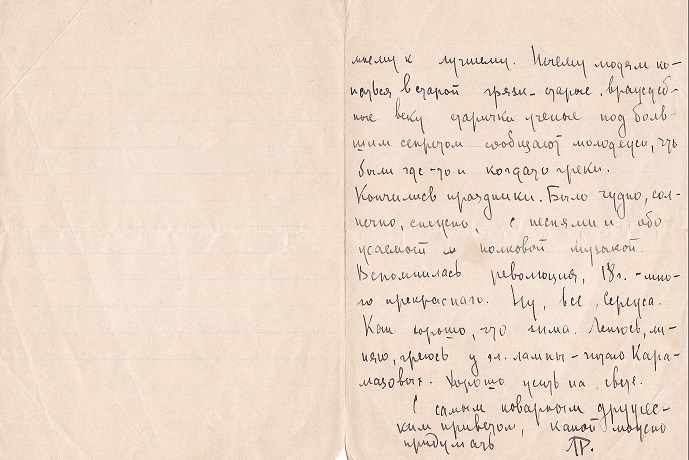 к лучшему. Почему людям ко-
паться в старой грязи – старые, враждеб-
ные веку старички ученые под боль-
шим секретом сообщают молодежи, что
были где-то и когда-то греки.
Кончились праздники. Было чудно, сол-
нечно, с песнями и
полковой музыкой.
Вспомнилась революция, 18 г. – мно-
го прекраснаго. Ну, все, Сережа.
Как хорошо, что зима. Ленюсь, ли-
няю, греюсь у эл. лампы – читаю Кара-
мазовых. Хорошо жить на свете.
С самым коварным дружес-
ким приветом, какой можно
придумать